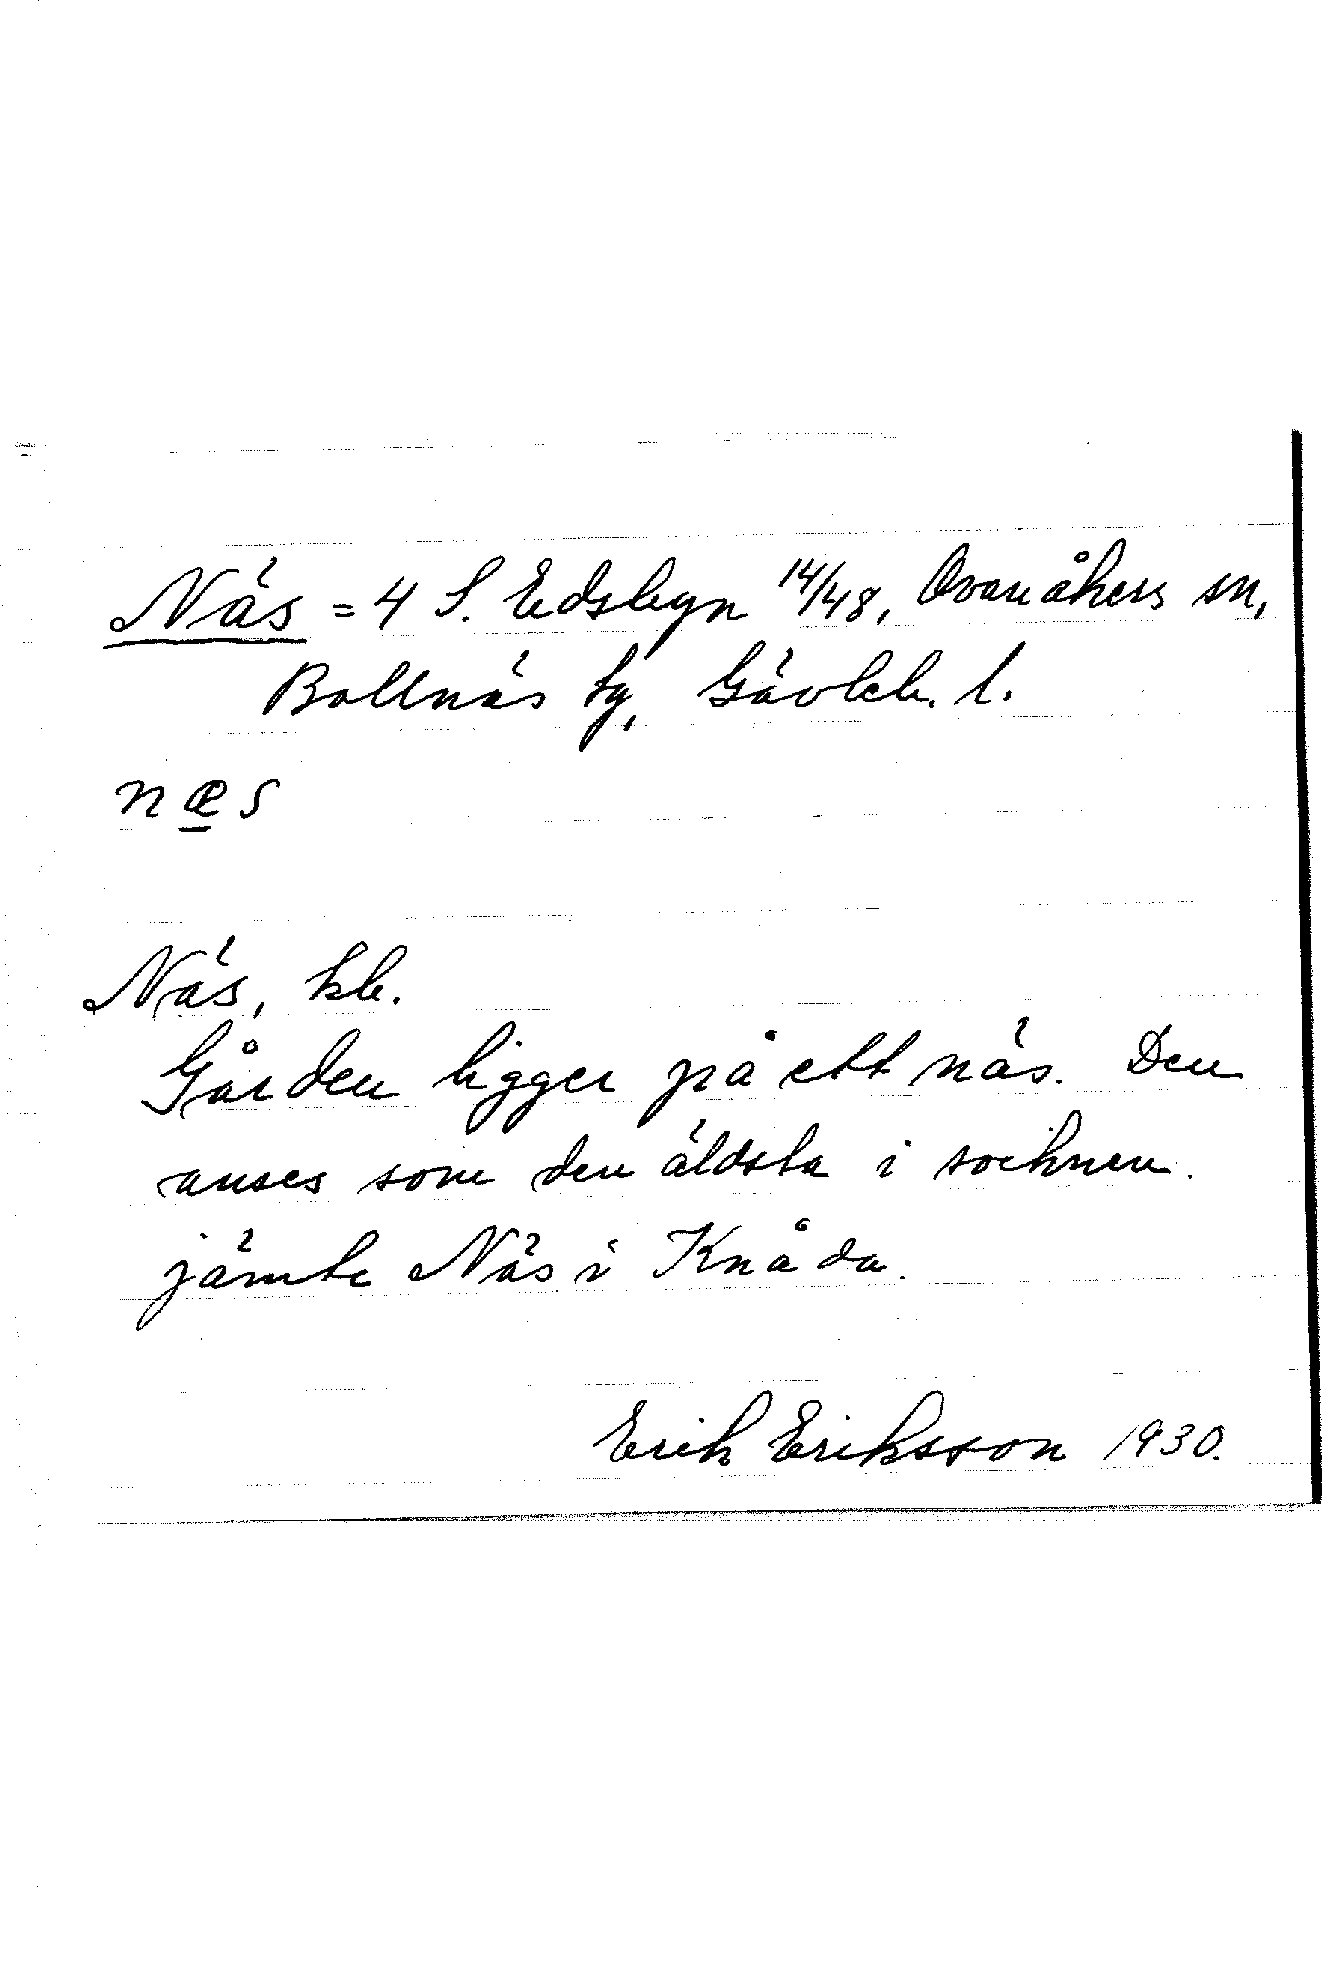 Näs = 4 S. Edsbyn 14/48, Ovanåkers sn,
Bollnäs tg, Gävleb. l.
næs
Näs, kb.
Gården ligger på ett näs. Den
anses som den äldsta i socknen.
jämte Näs i Knåda.
Erik Eriksson 1930.